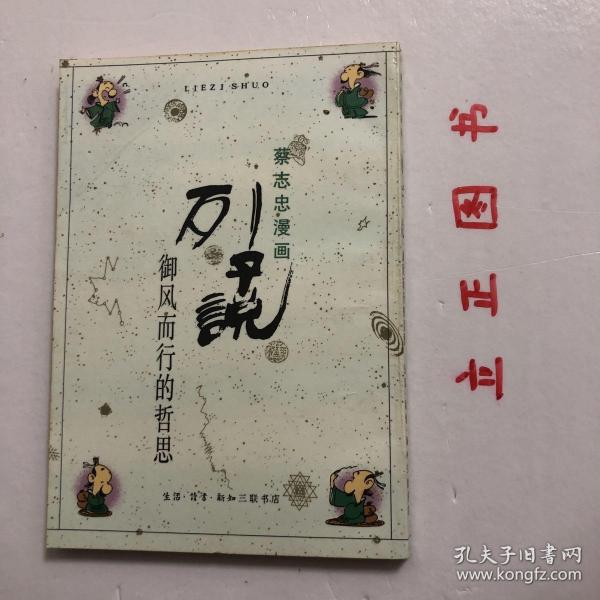 LIEZI SHUO
蔡志忠漫画
列子説
御风而行的哲思
生活·讀書·新知三联书店
立正图书
孔夫子旧书网
www.kongfz.com